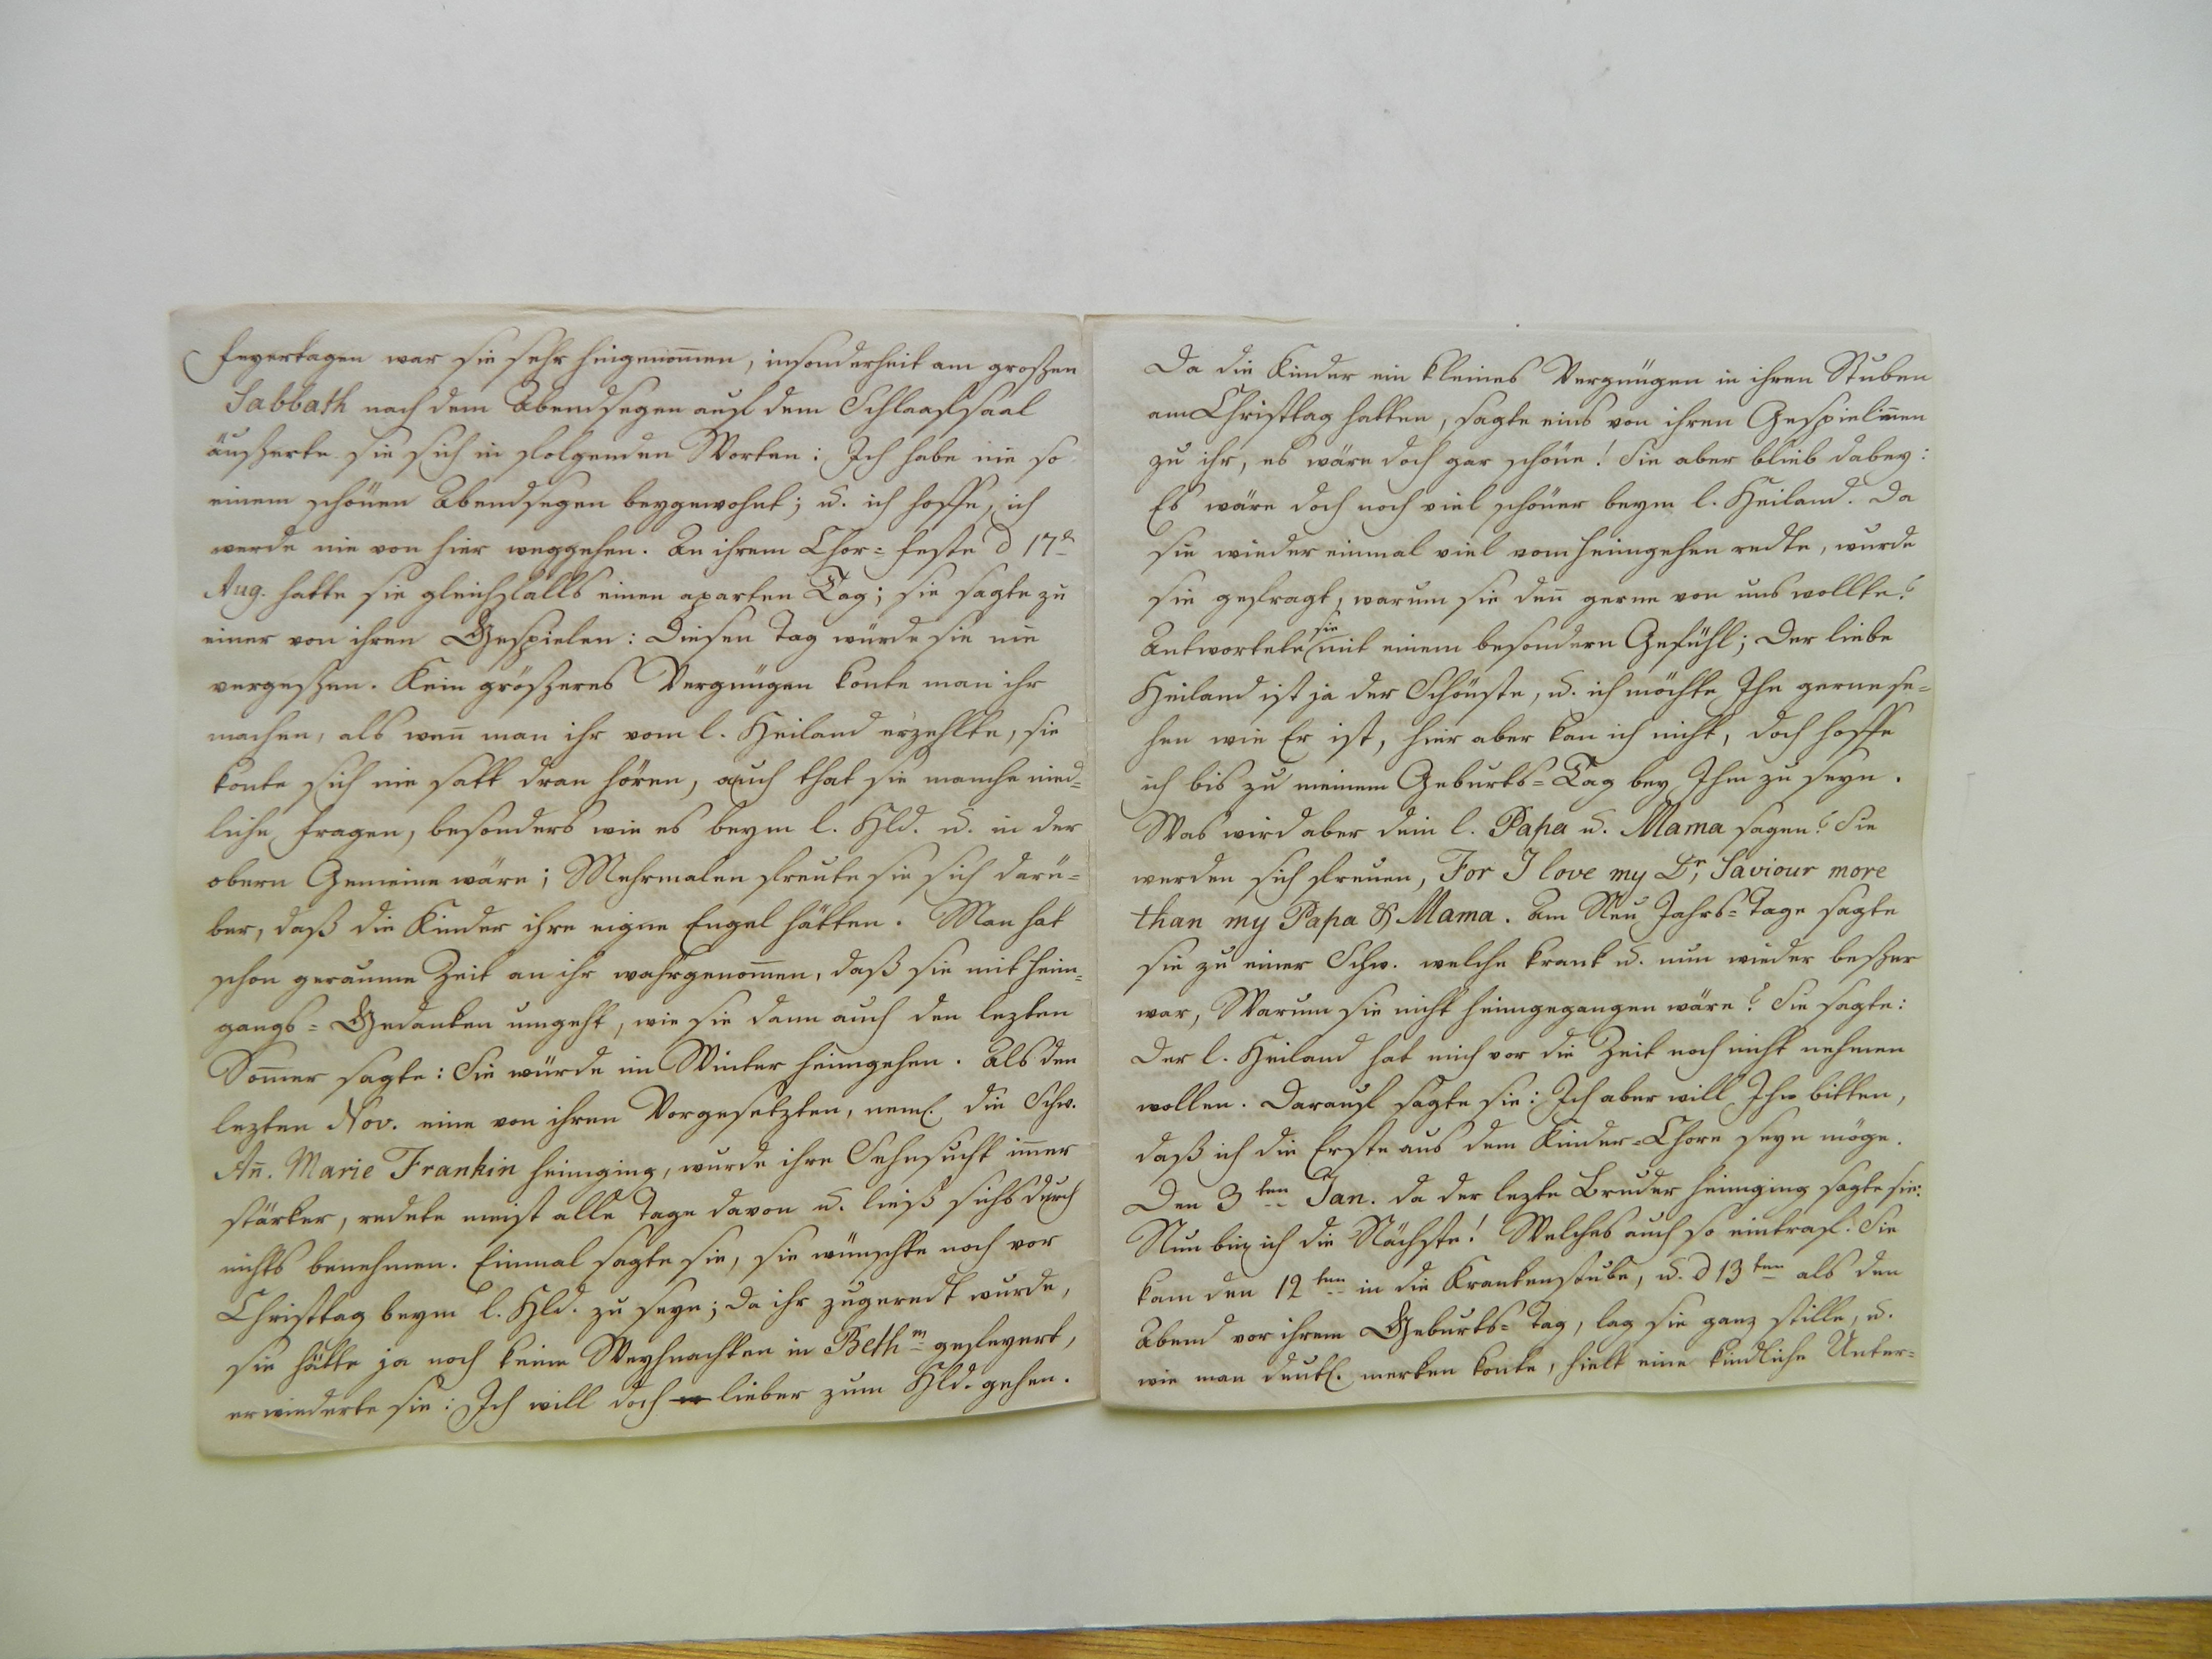 feyertagen war sie sehr hingenom̅en, insonderheit am großen
Sabbath nach dem Abendsegen auf dem Schlaafsaal
äußerte sie sich in folgenden Worten: Ich habe nie so
einem schönen Abendsegen beygewohnt; u. ich hoffe, ich
werde nie von hier weggehen. An ihrem Chor=feste d 17t
Aug. hatte sie gleichfalls einen aparten Tag; sie sagte zu
einer von ihren Gespielen: Diesen Tag würde sie nie
vergeßen. Kein größeres Vergnügen konte man ihr
machen, als wen̅ man ihr vom l. Heiland erzehlte, sie
konte sich nie satt dran hören, auch that sie manche nied=
liche fragen, besonders wie es beym l. Hld. u. in der
obern Gemeine wäre; Mehrmalen freute sie sich darü=
ber, daß die Kinder ihre eigne Engel hätten. Man hat
schon geraume Zeit an ihr wahrgenom̅en, daß sie mit heim=
gangs=Gedanken umgeht, wie sie dann auch den lezten
Som̅er sagte: Sie würde im Winter heimgehen. Als den
lezten Nov. eine von ihren Vorgesetzten, neml. die Schw.
An̅. Marie Frankin heimging, wurde ihre Sehnsucht im̅er
stärker, redete meist alle Tage davon u. ließ sichs durch
nichts benehmen. Einmal sagte sie, sie wünschte noch vor
Christtag beym l. Hld. zu seyn; da ihr zugeredt wurde,
sie hätte ja noch keine Weyhnachten in Bethm gefeyert,
erwiederte sie: Ich will doch lieber zum Hld. gehen.
Da die Kinder ein kleines Vergnügen in ihren Stuben
am Christtag hatten, sagte eins von ihren Gespielin̅en
zu ihr, es wäre doch gar schöne! Sie aber blieb dabey:
Es wäre doch noch viel schöner beym l. Heiland. Da
sie wieder einmal viel vom heimgehen redte, wurde
sie gefragt, warum sie den̅ gerne von uns wollte?
Antwortete sie mit einem besondern Gefühl; Der liebe
Heiland ist ja der Schönste, u. ich möchte Ihn gerne se=
hen wie Er ist, hier aber kan ich nicht, doch hoffe
ich bis zu meinem Geburts=Tag bey Ihm zu seyn.
Was wird aber dein l. Papa u. Mama sagen? Sie
werden sich freuen, For I love my Dr, Saviour more
than my Papa & Mama. Am Neu Jahrs=Tage sagte
sie zu einer Schw. welche krank u. nun wieder beßer
war, Warum sie nicht heimgegangen wäre? Sie sagte:
Der l. Heiland hat mich vor die Zeit noch nicht nehmen
wollen. Darauf sagte sie: Ich aber will Ihn bitten,
daß ich die Erste aus dem Kinder=Chore seyn möge.
Den 3ten Jan. da der lezte Bruder heimging sagte sie:
Nun bin ich die Nächste! Welches auch so eintraf. Sie
kam den 12ten in die Krankenstube, u. d 13ten als den
Abend vor ihrem Geburts=Tag, lag sie ganz stille, u.
wie man deutl. merken konte, hielt eine kindliche Unter=